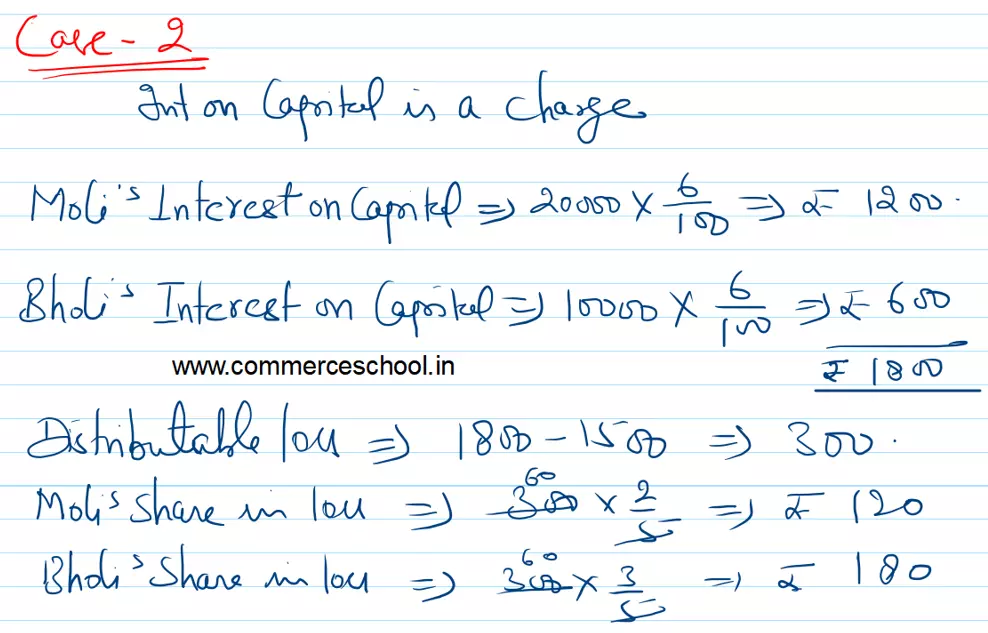 Case - 2
Int on Capital is a charge
Moli's Interest on Capital ⇒ 20000 × 6/100 ⇒ ₹ 1200.
Bholi's Interest on Capital ⇒ 10000 × 6/100 ⇒ ₹ 600
www.commerceschool.in
₹ 1800
Distributable loss ⇒ 1800 - 1500 ⇒ 300.
60
Moli's share in loss ⇒ 300 × 2/5 ⇒ ₹ 120
60
Bholi's Share in loss ⇒ 300 × 3/5 ⇒ ₹ 180